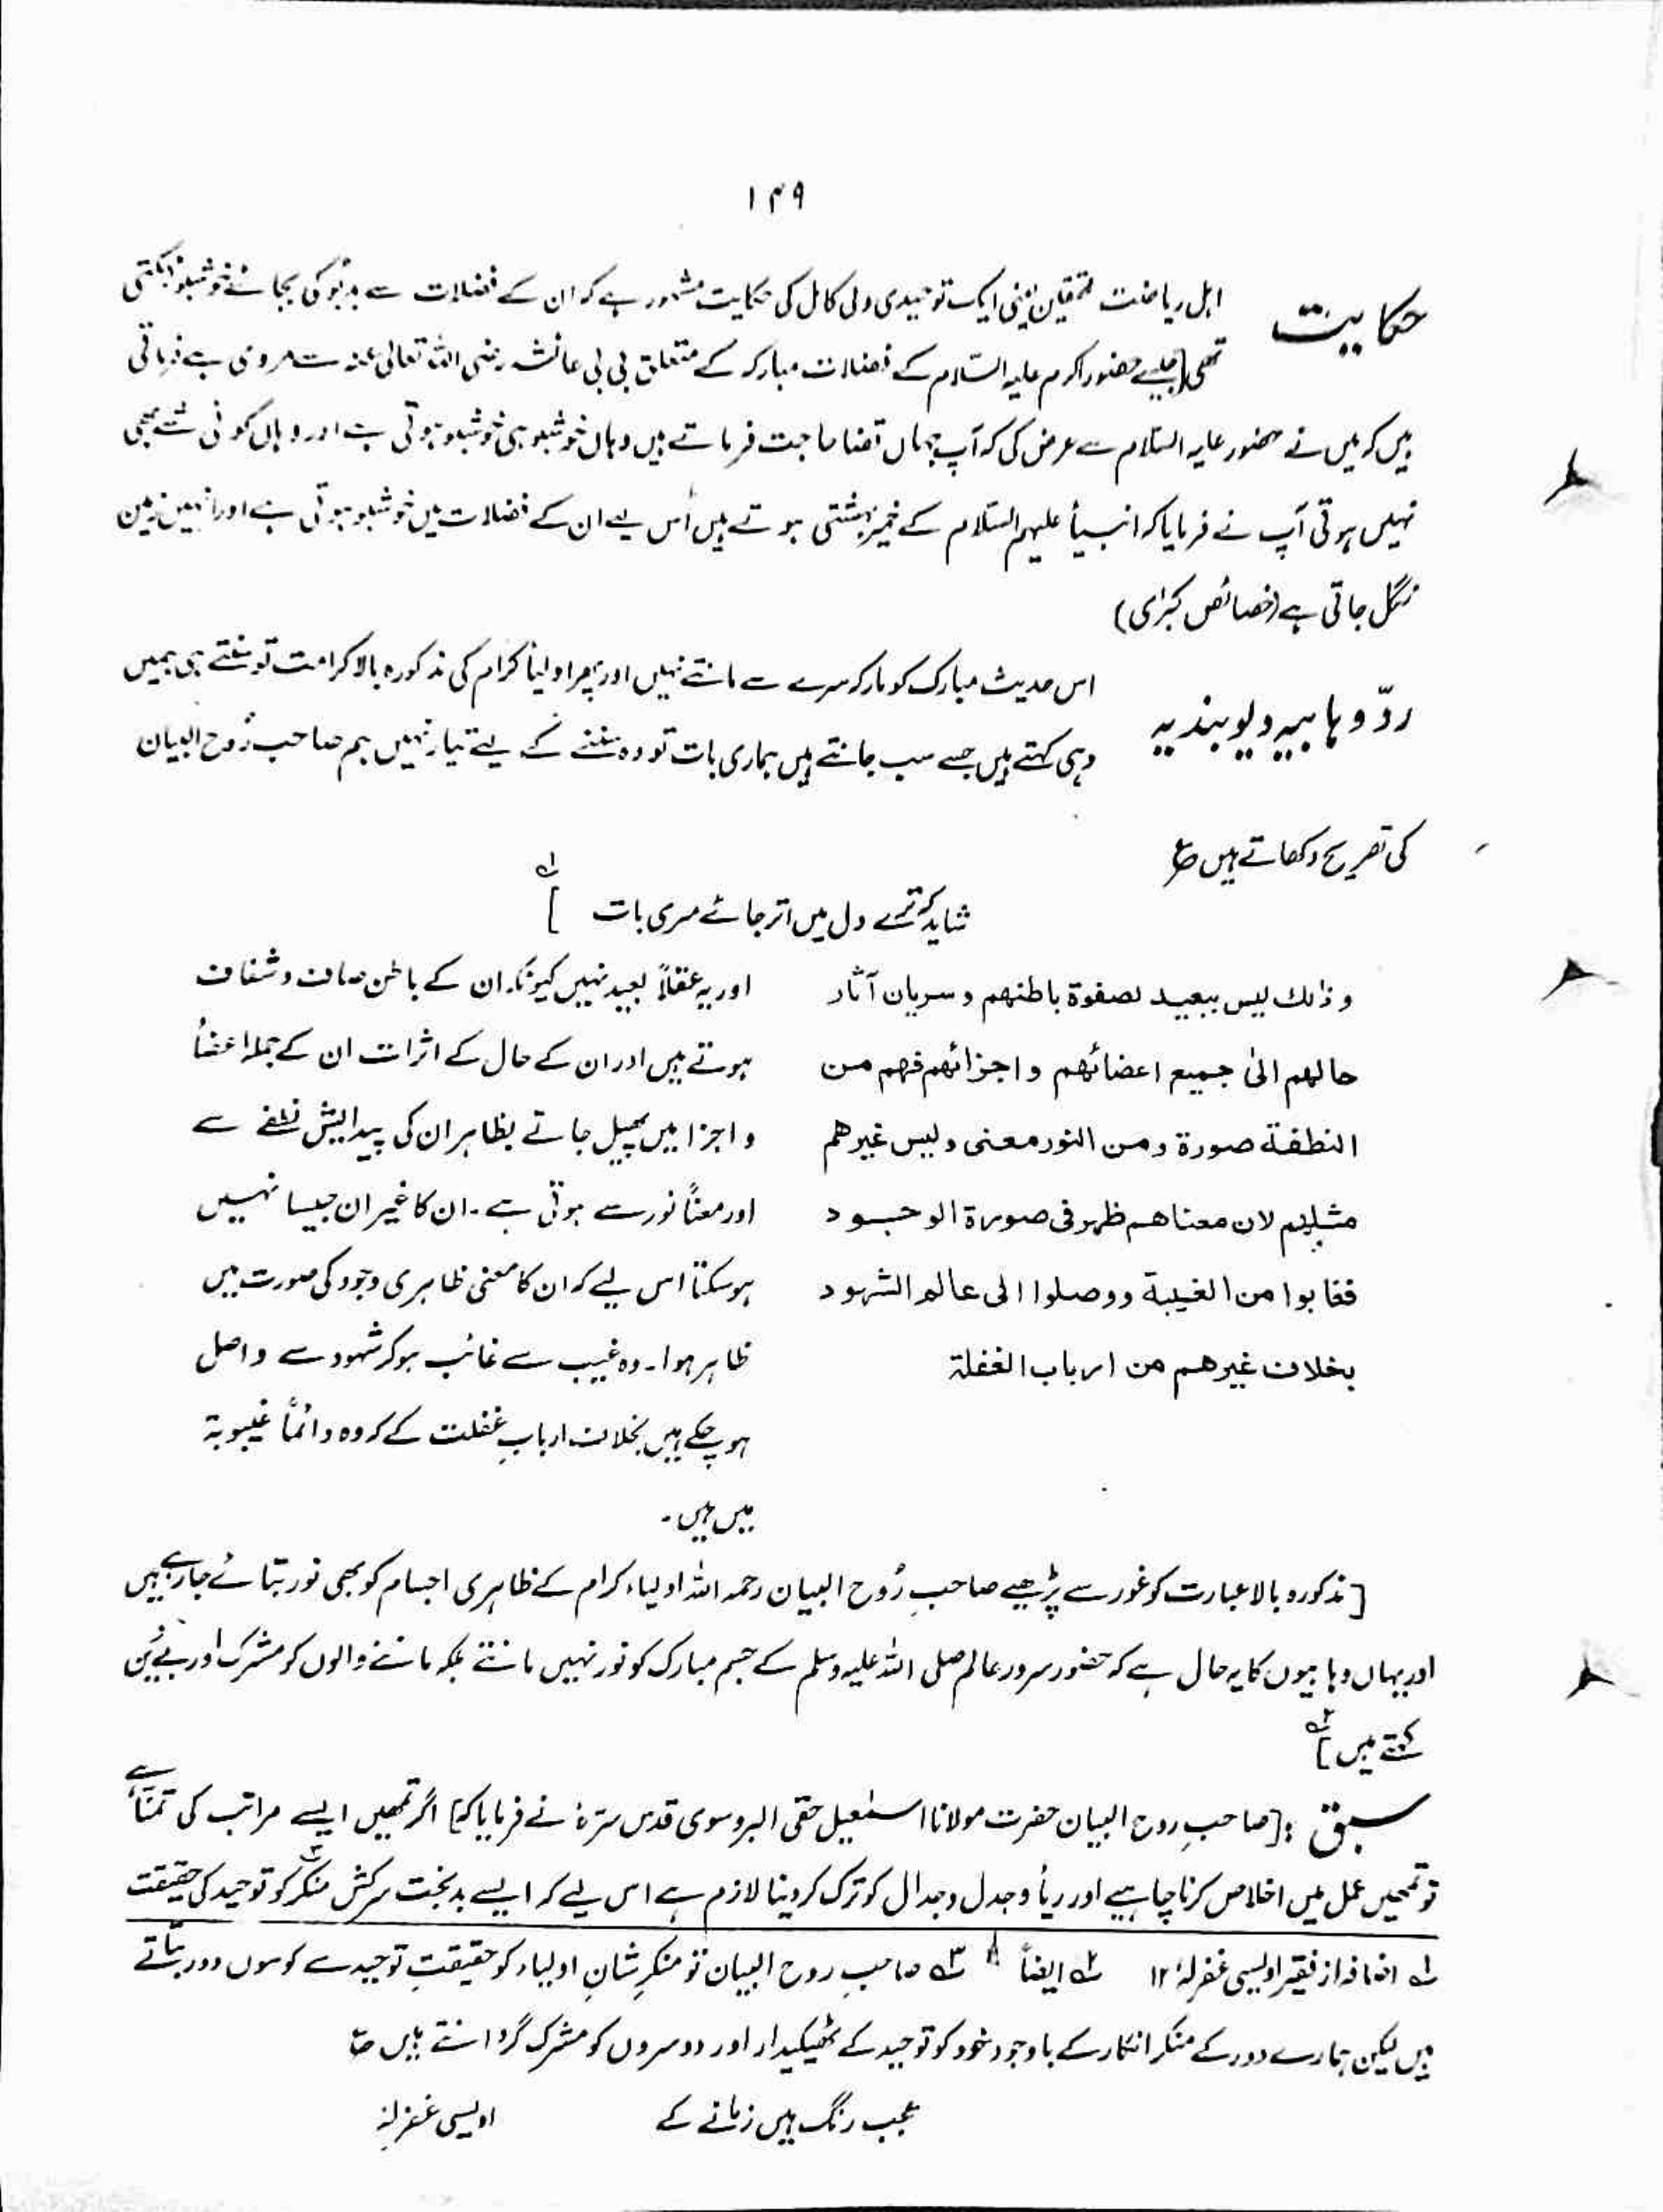 ۱۴۹
حکایت اہل ریاضت محققین یعنی ایک توحیدی ولی کامل کی حکایت مشہور ہے کہ ان کے فضلات سے بدبو کی بجائے خوشبو نکلتی
تھی [جیسے حضور اکرم علیہ السّلام کے فضلات مبارکہ کے متعلق بی بی عائشہ رضی اللہ تعالیٰ عنہ سے مروی ہے فرماتی
ہیں کہ میں نے حضور علیہ السّلام سے عرض کی کہ آپ جہاں قضا حاجت فرماتے ہیں وہاں خوشبو ہی خوشبو ہوتی ہے اور وہاں کوئی شے بھی
نہیں ہوتی آپ نے فرمایا کہ انبیأ علیہم السّلام کے خمیر بہشتی ہوتے ہیں اُس لیے ان کے فضلات میں خوشبو ہوتی ہے اور انہیں زمین
نگل جاتی ہے (خصائص کبرٰی)
ردّ وہابیہ دیوبندیہ اس حدیث مبارک کو مارکر سرے سے مانتے نہیں اور پھر اولیأ کرام کی مذکورہ بالا کرامت تو سنتے ہی ہمیں
وہی کہتے ہیں جسے سب جانتے ہیں ہماری بات تو وہ سننے کے لیے تیار نہیں ہم صاحب رُوح البیان
کی تصریح دکھاتے ہیں ؏
شاید کہ ترے دل میں اتر جائے مری بات ] لہ
و ذالك ليس ببعيد لصفوة باطنهم و سريان آثار
حالهم الیٰ جميع اعضائهم و اجزائهم فهم من
النطفة صورة ومن النور معنى وليس غيرهم
مثلهم لان معناهم ظهر فى صورة الوجود
فغابوا من الغيبة ووصلوا الى عالم الشهود
بخلاف غيرهم من ارباب الغفلة
اور یہ عقلاً بعید نہیں کیونکہ ان کے باطن صاف و شفاف
ہوتے ہیں اور ان کے حال کے اثرات ان کے جملہ اعضأ
و اجزا میں پھیل جاتے بظاہر ان کی پیدایش نطفے سے
اور معناً نور سے ہوتی ہے ۔ ان کا غیر ان جیسا نہیں
ہوسکتا اس لیے کہ ان کا معنی ظاہری وجود کی صورت میں
ظاہر ہوا ۔ وہ غیب سے غائب ہوکر شہود سے واصل
ہوچکے ہیں بخلاف اربابِ غفلت کے کہ وہ دائماً غیبوبۃ
میں ہیں ۔
[ مذکورہ بالا عبارت کو غور سے پڑھیے صاحبِ رُوح البیان رحمہ اللہ اولیاء کرام کے ظاہری اجسام کو بھی نور بتائے جارہے ہیں
اور یہاں وہابیوں کا یہ حال ہے کہ حضور سرور عالم صلی اللہ علیہ وسلم کے جسم مبارک کو نور نہیں مانتے بلکہ ماننے والوں کو مشرک اور بے دین
کہتے ہیں ] ۲ہ
سبق :[ صاحبِ روح البیان حضرت مولانا اسمٰعیل حقی البروسوی قدس سرّہٗ نے فرمایا کہ] اگر تمھیں ایسے مراتب کی تمنّا ہے
تو تمھیں عمل میں اخلاص کرنا چاہیے اور ریأ وجدل وجدال کو ترک کردینا لازم ہے اس لیے کہ ایسے بدبخت سرکش منکر ۳ہ کو توحید کی حقیقت
لہ اضافہ از فقیر اویسی غفرلہٗ ۱۲ ۲ہ ایضاً ۳ہ صاحبِ روح البیان تو منکرِ شانِ اولیاء کو حقیقتِ توحید سے کوسوں دور بتاتے
ہیں لیکن ہمارے دور کے منکر انکار کے باوجود خود کو توحید کے ٹھیکیدار اور دوسروں کو مشرک گردانتے ہیں ؏
عجب رنگ ہیں زمانے کے اویسی غفرلہٗ